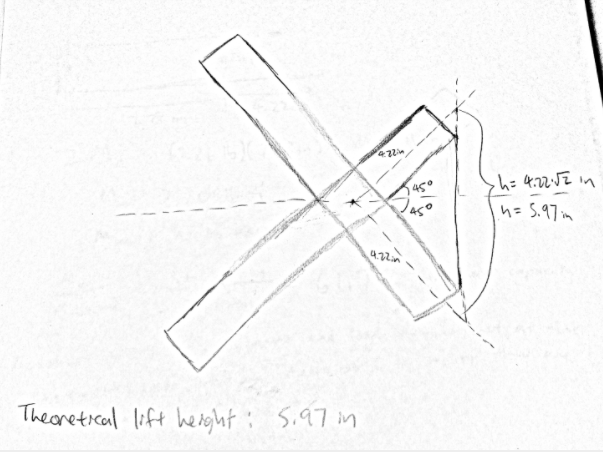 4.22in
45°
45°
h = 4.22·√2 in
h = 5.97 in
4.22in
Theoretical lift height : 5.97 in